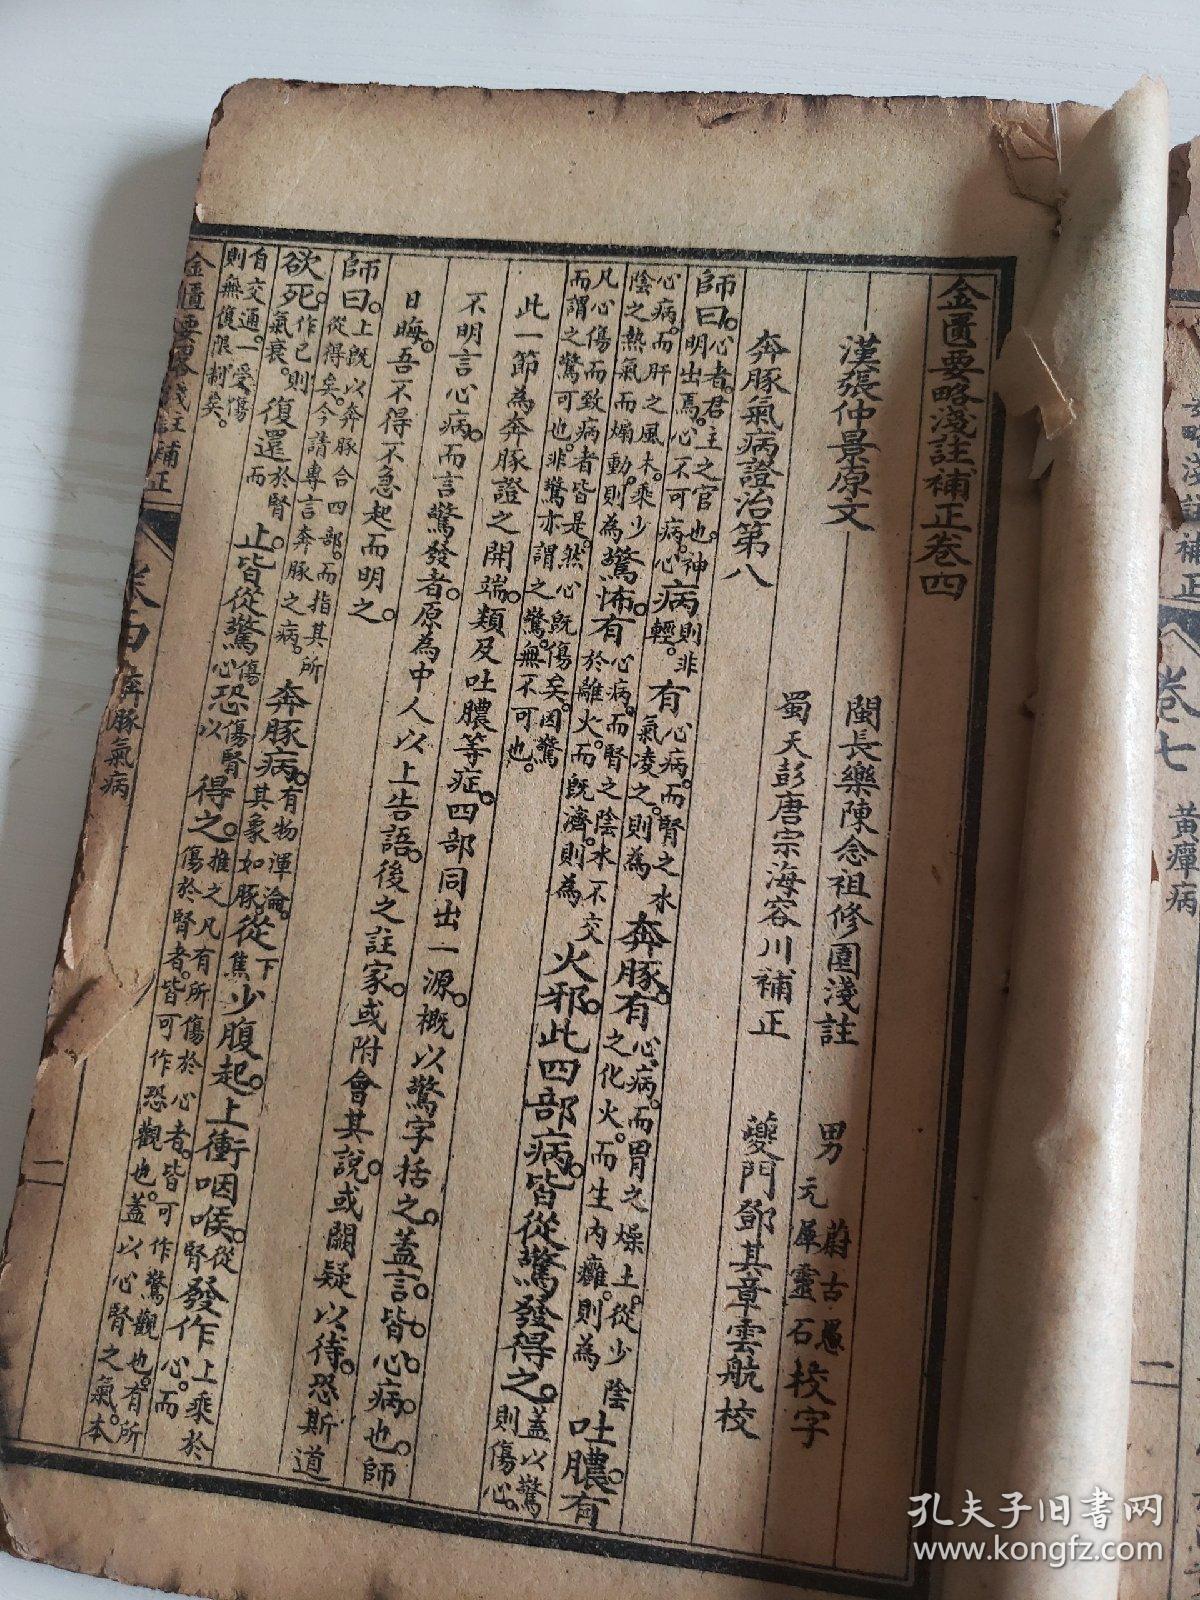 金匱要略淺註補正卷四
漢張仲景原文
閩長樂陳念祖修園淺註
男
蔚古愚
元犀靈石
校字
蜀天彭唐宗海容川補正
夔門鄧其章雲航校
奔豚氣病證治第八
師曰。心者。君主之官也。神明出焉。心不可病。心病則非輕。有心病。而腎之水氣凌之。則為奔豚。有心病。而胃之燥土。從少陰之化火。而生內癰。則為吐膿。有
心病。而肝之風木。乘少陰之熱氣而煽動。則為驚怖。有心病。而腎之陰水不交於離火。而既濟。則為火邪。此四部病。皆從驚發得之。蓋以驚則傷心。
凡心傷而致病者皆是。然心既傷矣。因驚而謂之驚可也。非驚亦謂之驚。無不可也。
此一節為奔豚證之開端。類及吐膿等症。四部同出一源。概以驚字括之。蓋言皆心病也。師
不明言心病。而言驚發者。原為中人以上告語。後之註家。或附會其說。或闕疑以待。恐斯道
日晦。吾不得不急起而明之。
師曰。上既以奔豚合四部。而指其所從得矣。今請專言奔豚之病。奔豚病。有物渾淪。其象如豚。從下焦少腹起。上衝咽喉。從腎發作上乘於心。而
欲死。作已則氣衰。復還於腎而止。皆從驚傷心恐傷腎以得之。推之凡有所傷於心者。皆可作驚觀也。有所傷於腎者。皆可作恐觀也。蓋以心腎之氣。本
自交通。一受傷則無復限制矣。
金匱要略淺註補正
卷四 奔豚氣病
二
要略淺註補正
卷七 黃癉病
二
孔夫子旧书网
www.kongfz.com